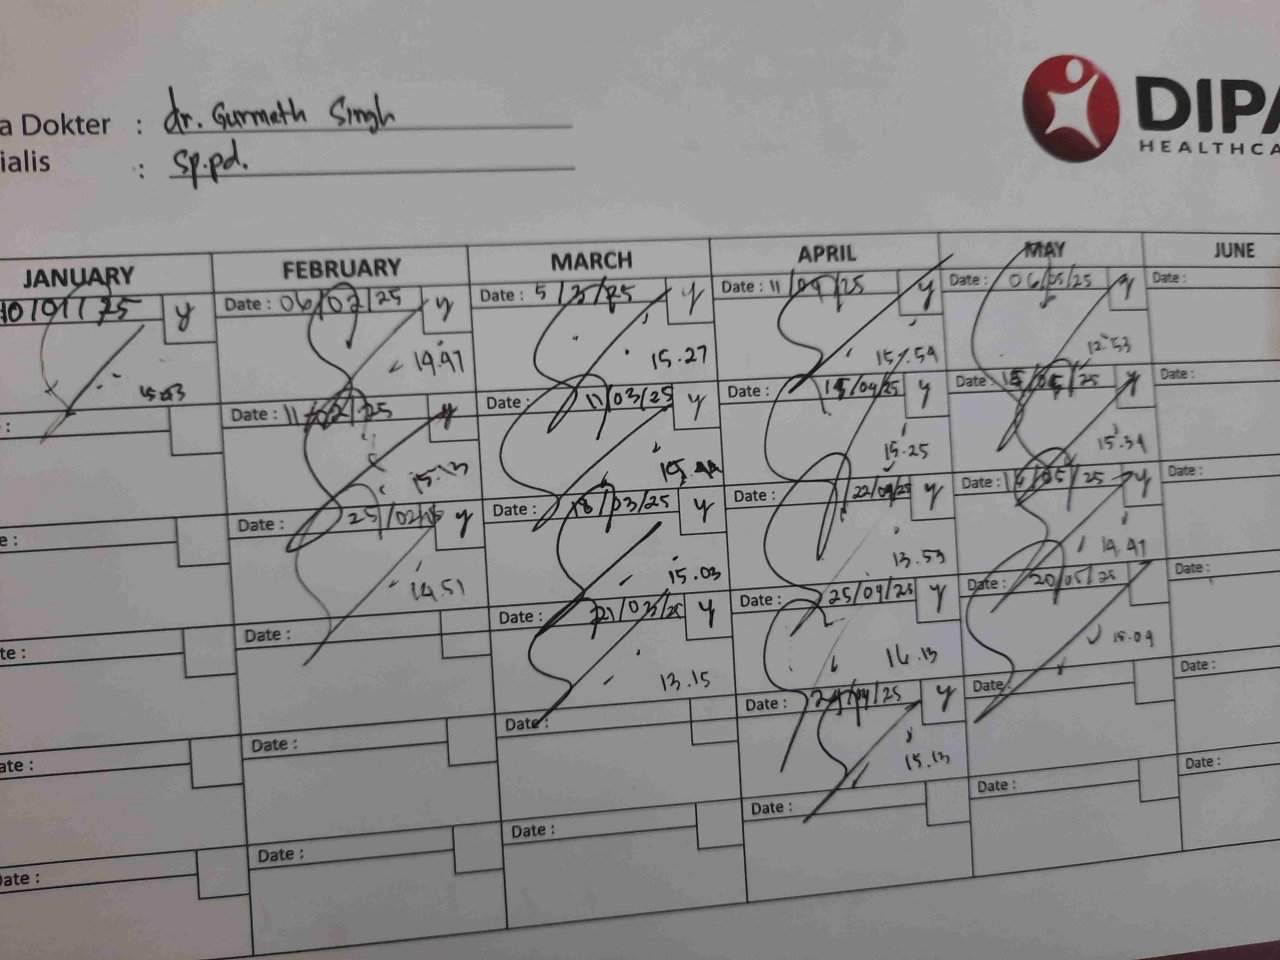 a Dokter : dr. Gurmeth Singh
ialis : Sp.pd.
DIPA
HEALTHCA
JANUARY FEBRUARY MARCH APRIL MAY JUNE
10/01/25 y Date : 06/02/25 y Date : 5/3/25 y Date : 11/04/25 y Date : 06/05/25 y Date :
15.03 14.47 15.27 15.59 12.53
: Date : 11/02/25 y Date : 11/03/25 y Date : 15/04/25 y Date : 15/05/25 y Date :
15.13 15.25 15.34
e : Date : 25/02/25 y Date : 18/03/25 y Date : 22/04/25 y Date : 16/05/25 y Date :
14.51 15.03 13.53 14.47
te : Date : Date : 21/03/25 y Date : 25/04/25 y Date : 20/05/25 Date :
13.15 16.13 15.09
ate : Date : Date : Date : 29/04/25 y Date : Date :
15.13
Date : Date : Date : Date : Date : Date :